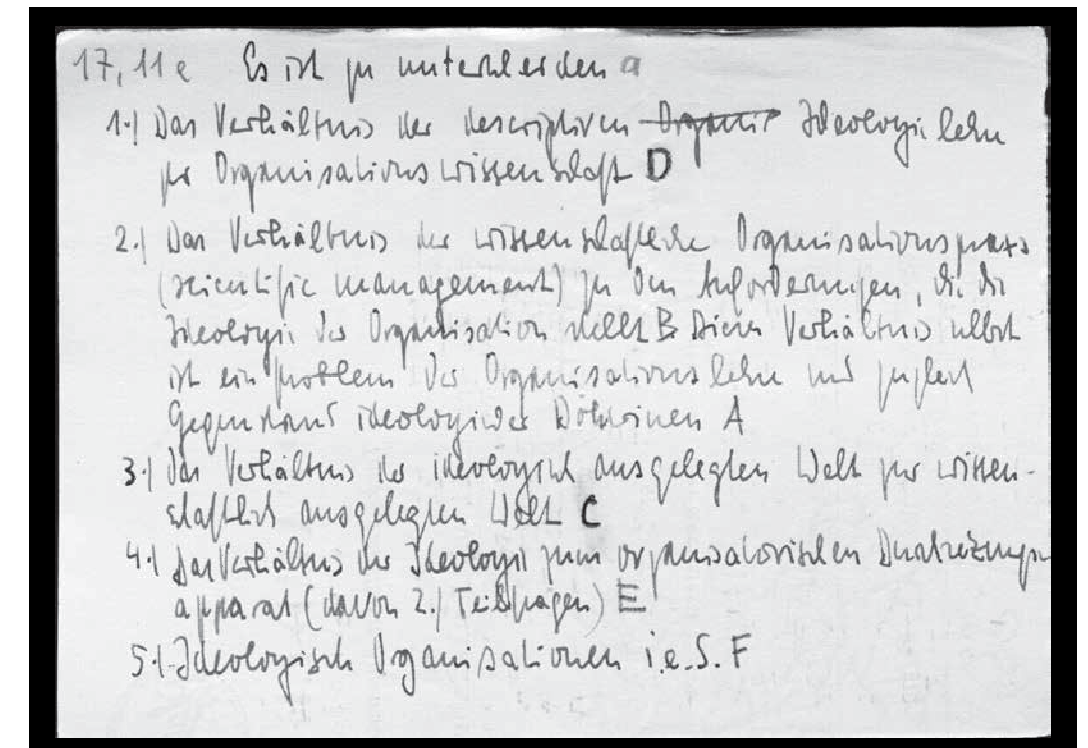 17,11e Es ist zu unterscheiden a
1.) Das Verhältnis der descriptiven Ideologielehre
zur Organisationswissenschaft D
2.) Das Verhältnis der wissenschaftlichen Organisationspraxis
(scientific management) zu den Anforderungen, die die
Ideologie der Organisation stellt B Dieses Verhältnis selbst
ist ein Problem der Organisationslehre und zugleich
Gegenstand ideologischer Doktrinen A
3.) Das Verhältnis der ideologisch ausgelegten Welt zur wissen-
schaftlich ausgelegten Welt C
4.) Das Verhältnis der Ideologie zum organisatorischen Durchsetzungs
apparat (davon 2.) Teilfragen) E
5.) Ideologische Organisationen i.e.S. F